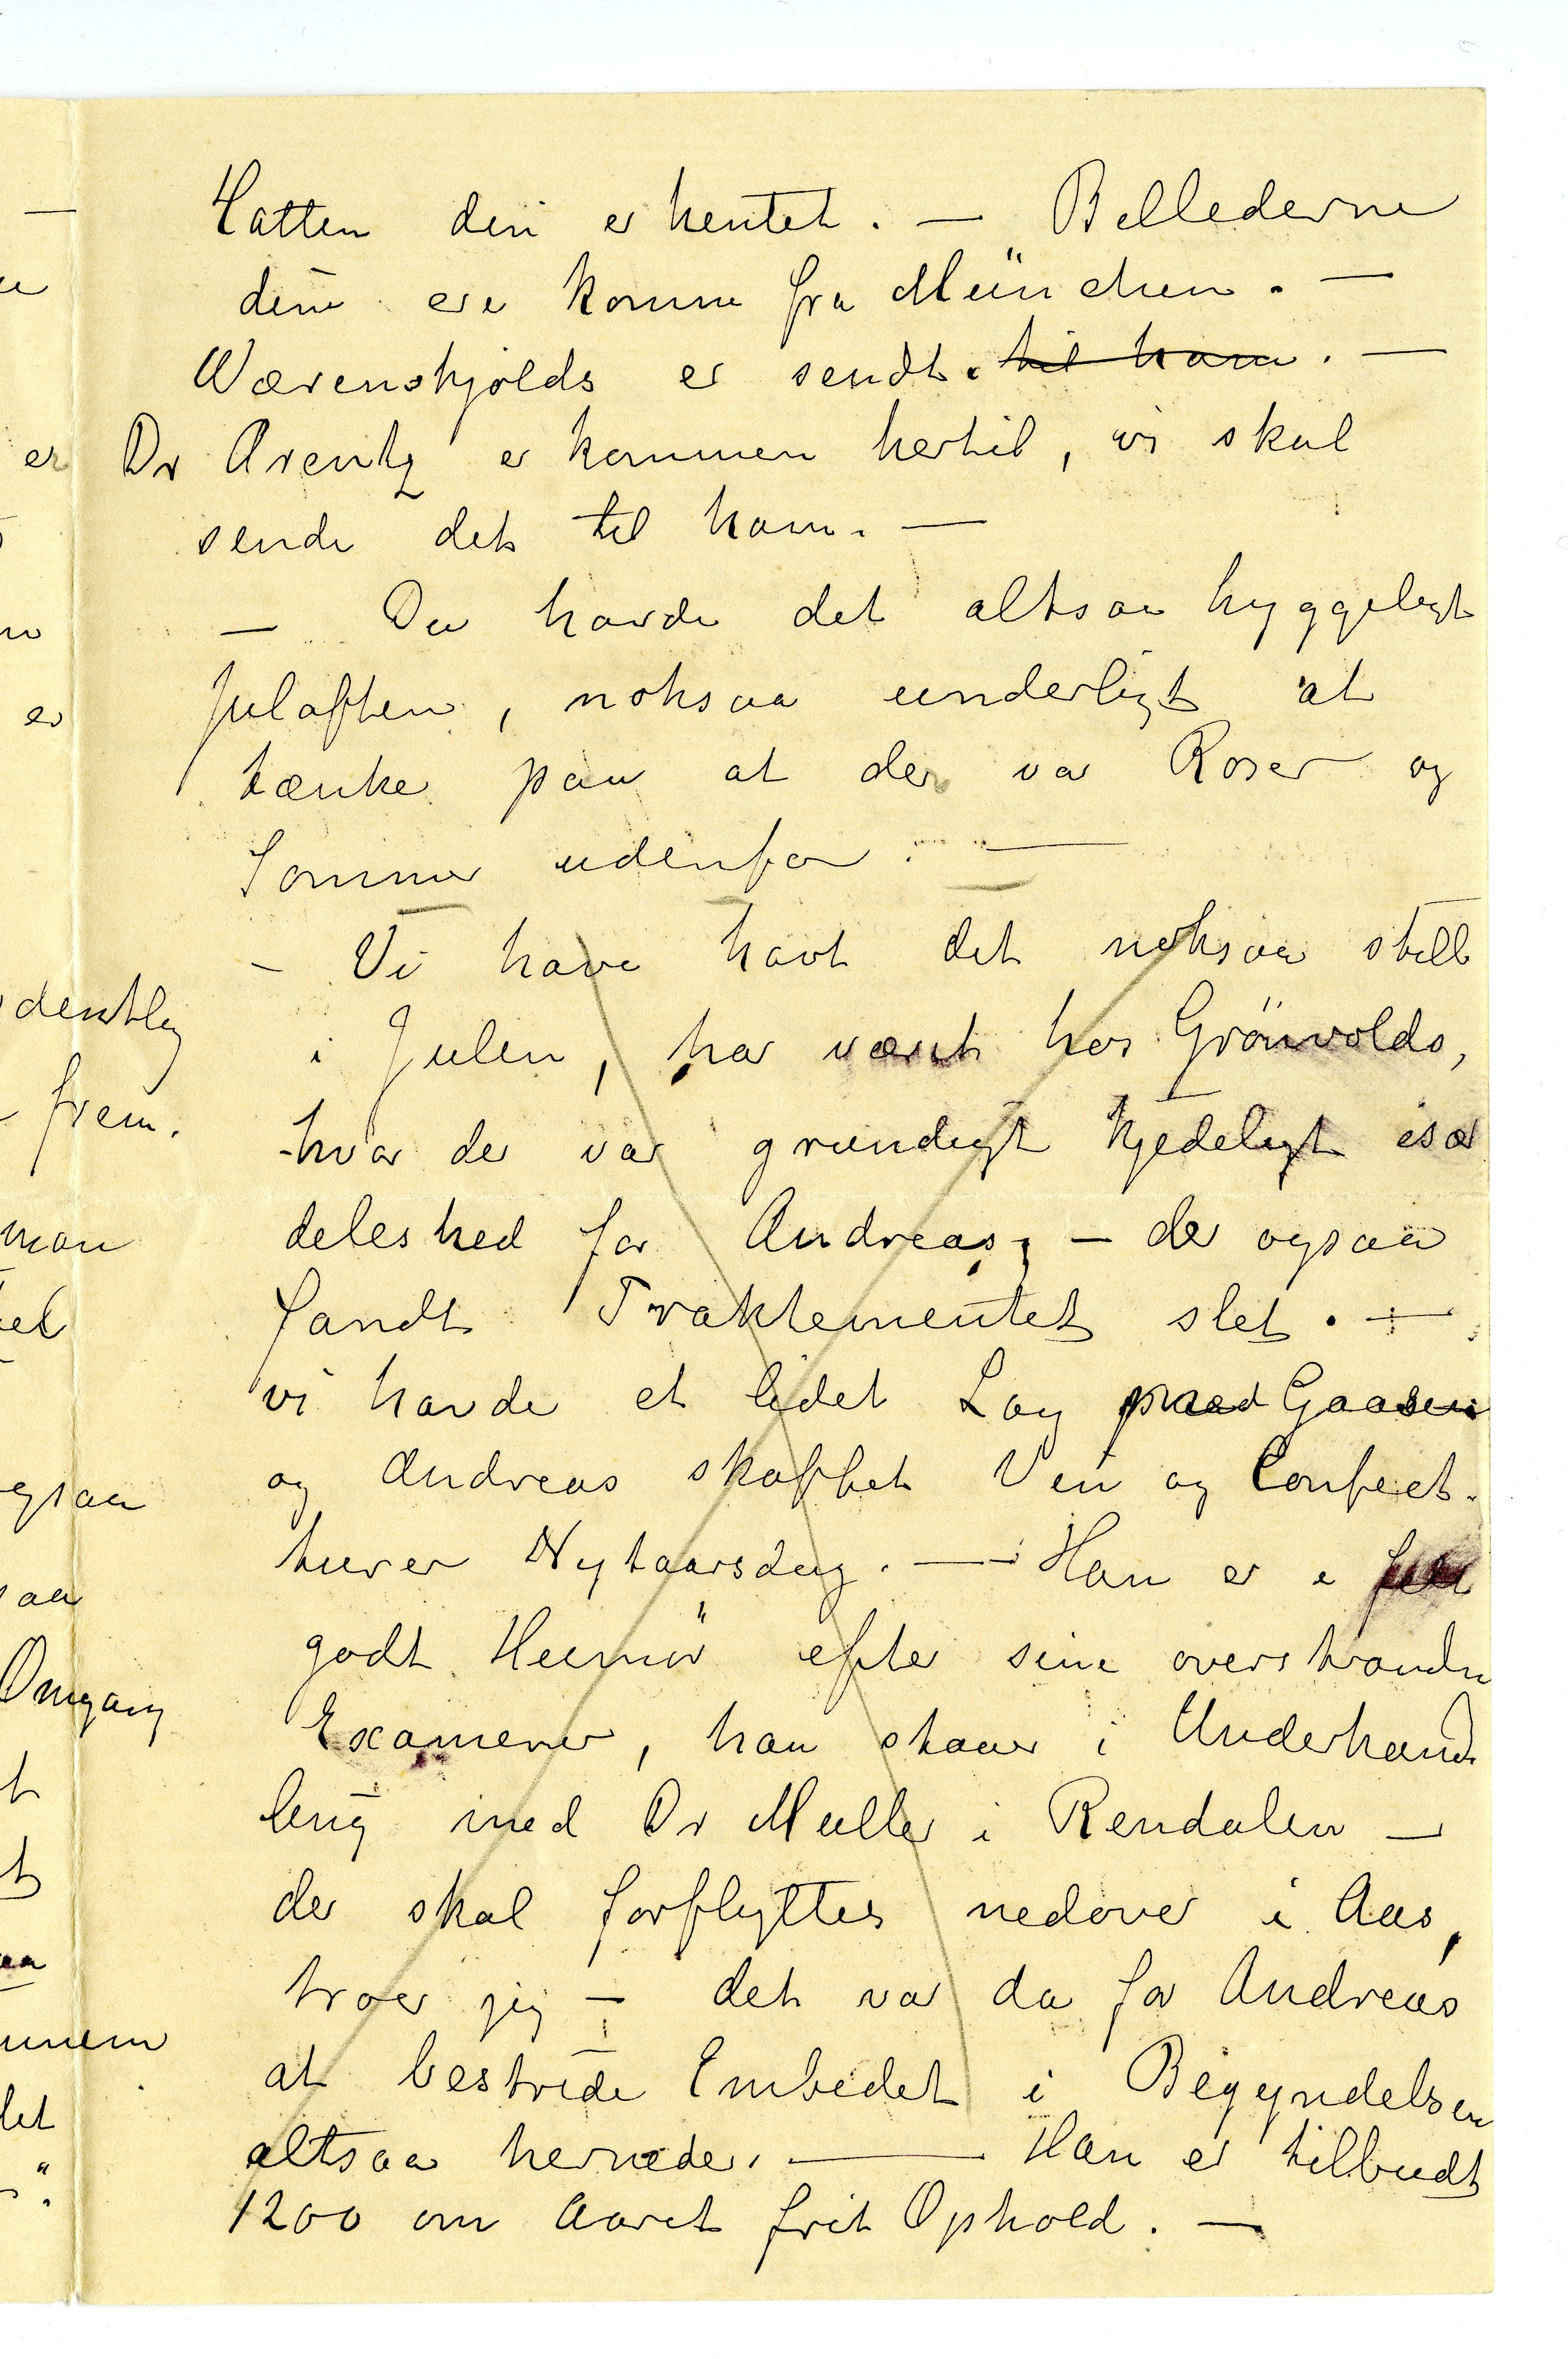 Hatten din er hentet. — Billederne
dine ere komne fra München. —
Wærenskjolds er sendt. til ham. —
Dr Arentz er kommen hertil, vi skal
sende det til ham. —
— Du havde det altsaa hyggeligt
Juleaften, noksaa underligt at
tænke paa at der var Roser og
Sommer udenfor. —
- Vi have havt det noksaa stille
i Julen, har været hos Grönvolds,
hvor der var grundigt kjedeligt især
deleshed for Andreas, — der ogsaa
fandt Traktementet slet. —
vi havde et lidet Lag med Gaasen
og Andreas skaffet Vin og Confect.
turer Nytaarsdag. — Han er i
godt Humör efter sine overstandne
Examener, han staaer i Underhand
ling med Dr Müller i Rendalen —
der skal forflyttes nedover i Aas,
troer jeg — det var da for Andreas
at bestride Embedet i Begyndelsen
altsaa hernede. — Han er tilbudt
1200 om Aaret frit Ophold. —
er
er
dentlig
frem.
man
ogsaa
saa
Omgang